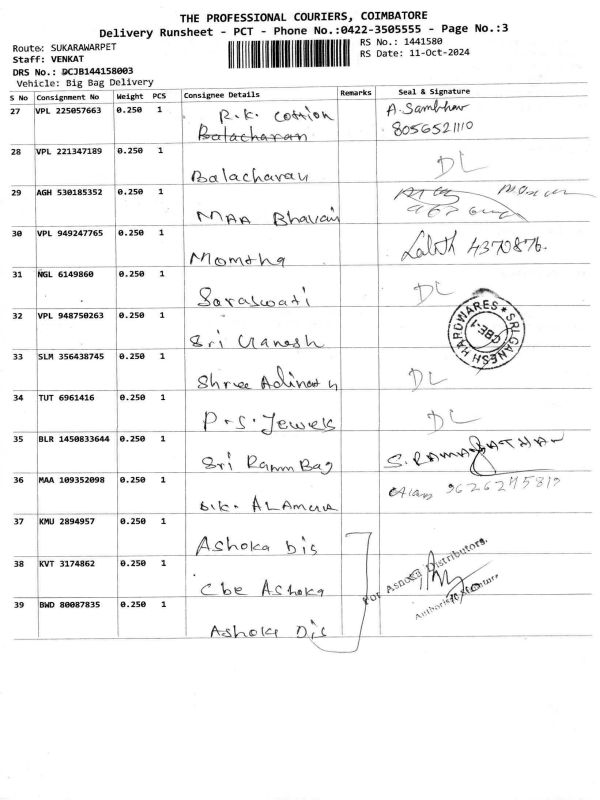 THE PROFESSIONAL COURIERS, COIMBATORE
Delivery Runsheet - PCT - Phone No.:0422-3505555 - Page No.:3
Route: SUKARAWARPET
RS No.: 1441580
Staff: VENKAT
RS Date: 11-Oct-2024
DRS No.: DCJB144158003
Vehicle: Big Bag Delivery
S No Consignment No Weight PCS Consignee Details Remarks Seal & Signature
27 VPL 225057663 0.250 1 R.K. Cottion A. Sambhav
Balacharan 8056521110
28 VPL 221347189 0.250 1 Balacharan DL
29 AGH 530185352 0.250 1 MAA Bhavani
30 VPL 949247765 0.250 1 Momtha Lalith 4370876.
31 NGL 6149860 0.250 1 Saraswati DL
32 VPL 948750263 0.250 1 Sri Ganesh SRI GANESH HARDWARES CBE-1
33 SLM 356438745 0.250 1 Shree Adinath DL
34 TUT 6961416 0.250 1 P.S. Jewels DL
35 BLR 1450833644 0.250 1 Sri Ramm Bag
36 MAA 109352098 0.250 1 9626245812
37 KMU 2894957 0.250 1 Ashoka Dis
38 KVT 3174862 0.250 1 Cbe Ashoka For Ashoka Distributors.
39 BWD 80087835 0.250 1 Ashoka Dis